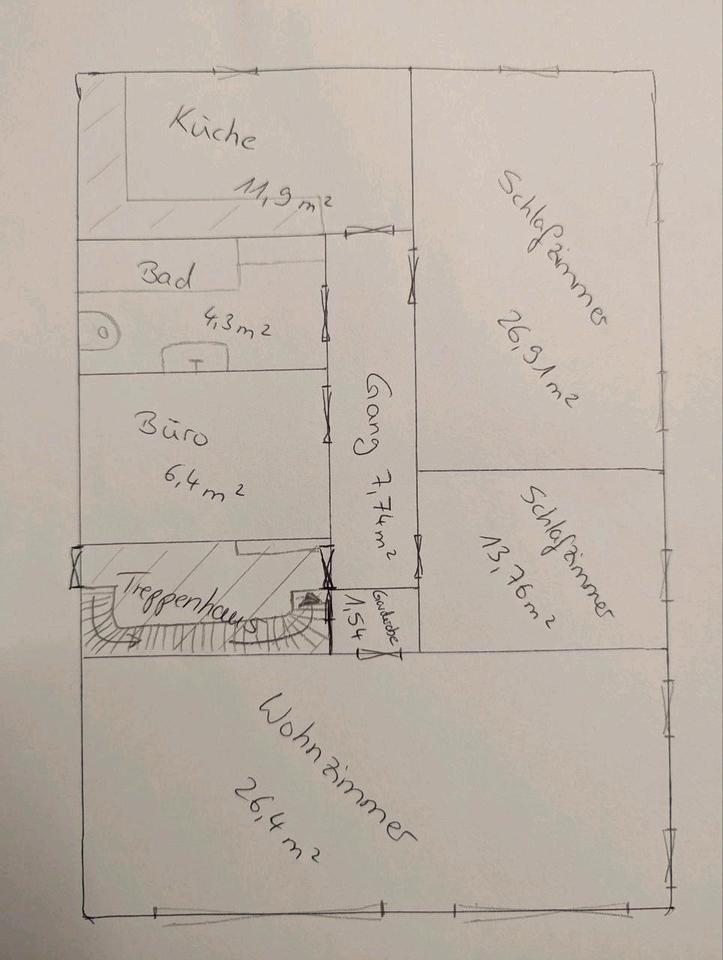 Küche
11,9 m²
Schlafzimmer
26,91 m²
Bad
4,3 m²
Gang 7,74 m²
Büro
6,4 m²
Schlafzimmer
13,76 m²
Treppenhaus
Garderobe
1,54
Wohnzimmer
26,4 m²